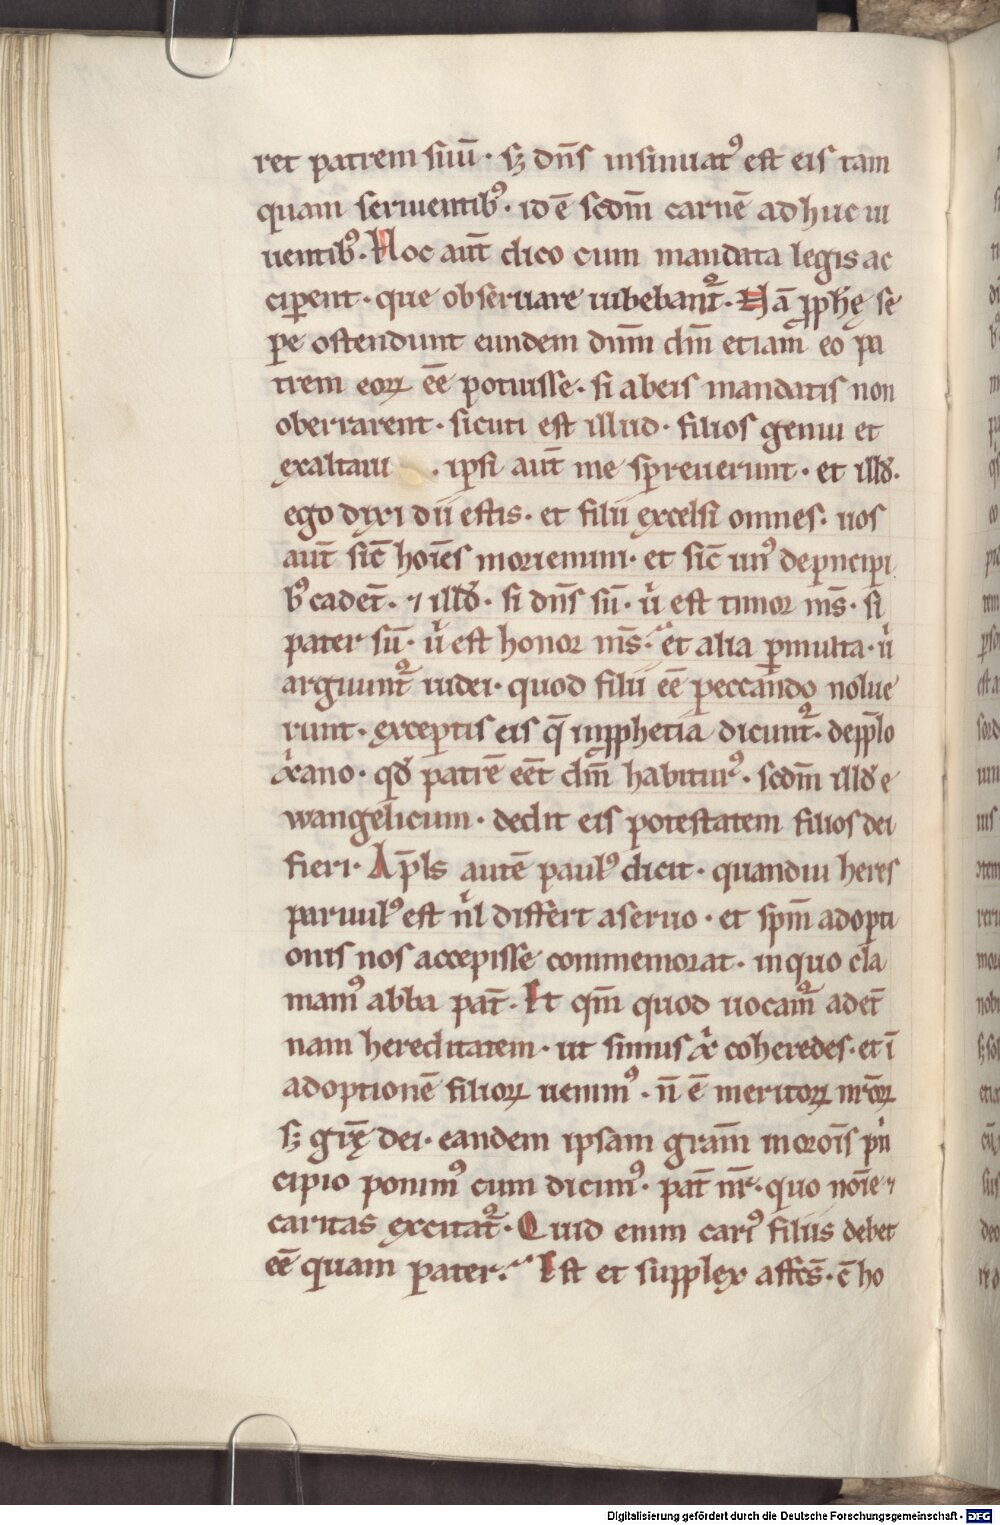 ret patrem suū · sꝫ dn̄s insinuatꝰ est eis tam
quam seruientibꝰ · id ē scdm̄ carnē ad huc ui
uentibꝰ · Hoc aut̄ dico cum mandata legis ac
ciꝑent · que obseruare iubebant᷑ · Nā ꝓph̄ę sę
pe ostendunt eundem dn̄m dm̄ etiam eo pa
trem eoꝝ ēē potuisse · si ab eis mandatis non
oberrarent · sicuti est illud · filios genui et
exaltaui · ipsi aut̄ me spreuerunt · et illđ ·
ego dixi dii estis · et filii excelsi omnes · uos
aut̄ sic̄ hoīes moriemini · et sic̄ unꝰ de pncipi
bꝰ cadet̄ · ⁊ illđ · si dn̄s sū · uͥ est timor ms̄ · si
pater sū · uͥ est honor ms̄ · et alia ꝑmulta · uͥ
arguunt᷑ iudei · quod filii ēē peccando nolue
runt · exceptis eis q̄ in ꝓphetia dicunt᷑ · de ppl̄o
xͥano · qđ patrē eēt dm̄ habiturꝰ · scdm̄ illđ e
wangelicum · dedit eis potestatem filios dei
fieri · Apl̄s autē paulꝰ dicit · quandiu heres
paruulꝰ est nͥl differt a seruo · et sp̄m adopti
onis nos accepisse commemorat · in quo cla
mamꝰ abba pat̄ · Et qm̄ quod uocam᷑ ad et̄
nam hereditatem · ut simus xͥ coheredes · et ī
adoptionē filioꝝ uenimꝰ · n̄ ē meritoꝝ nr̄oꝝ
sꝫ gr̄ę dei · eandem ipsam gram̄ in oroīs pͥn
cipio ponimꝰ cum dicimꝰ · pat̄ nr̄ · quo noīe ⁊
caritas excitat᷑ · Quid enim cariꝰ filiis debet
ēē quam pater · Est et supplex affcs̄ · c̄ ho
Digitalisierung gefördert durch die Deutsche Forschungsgemeinschaft - DFG